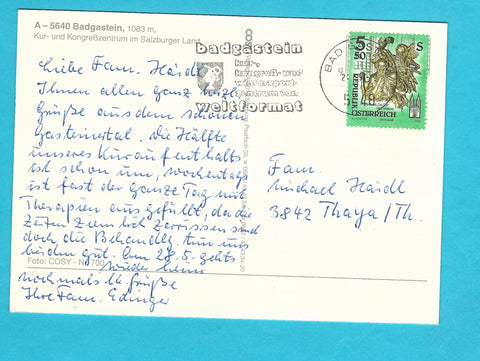 A – 5640 Badgastein, 1083 m,
Kur- und Kongreßzentrum im Salzburger Land
badgastein
kur-,
kongreß- und
wintersport-
zentrum von
weltformat
BAD
5640
5 S
50
REPUBLIK
ÖSTERREICH
Liebe Fam. Haidl
Ihnen allen ganz herzl.
Grüße aus dem schönen
Gasteinertal. Die Hälfte
unseres Kuraufenthalts
ist schon um, wochentags
ist fast der ganze Tag mit
Therapien ausgefüllt, da die
Zeiten ziemlich zerrissen sind
doch die Behandlg. tun uns
beiden gut. Am 28.5. gehts
wieder heim
nochmals lb Grüße
Ihre Fam. Edinger
Fam.
Michael Haidl
3842 Thaya/Th.
Foto: COSY - Nr. 700